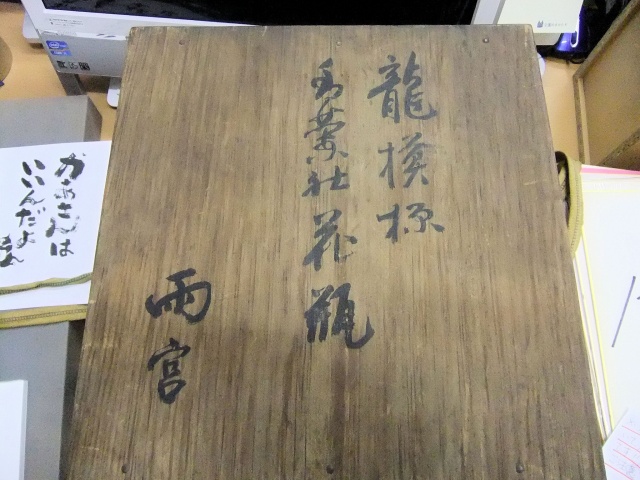 龍模様
万葉社花瓶
雨宮
かあさんは
いいんだよ